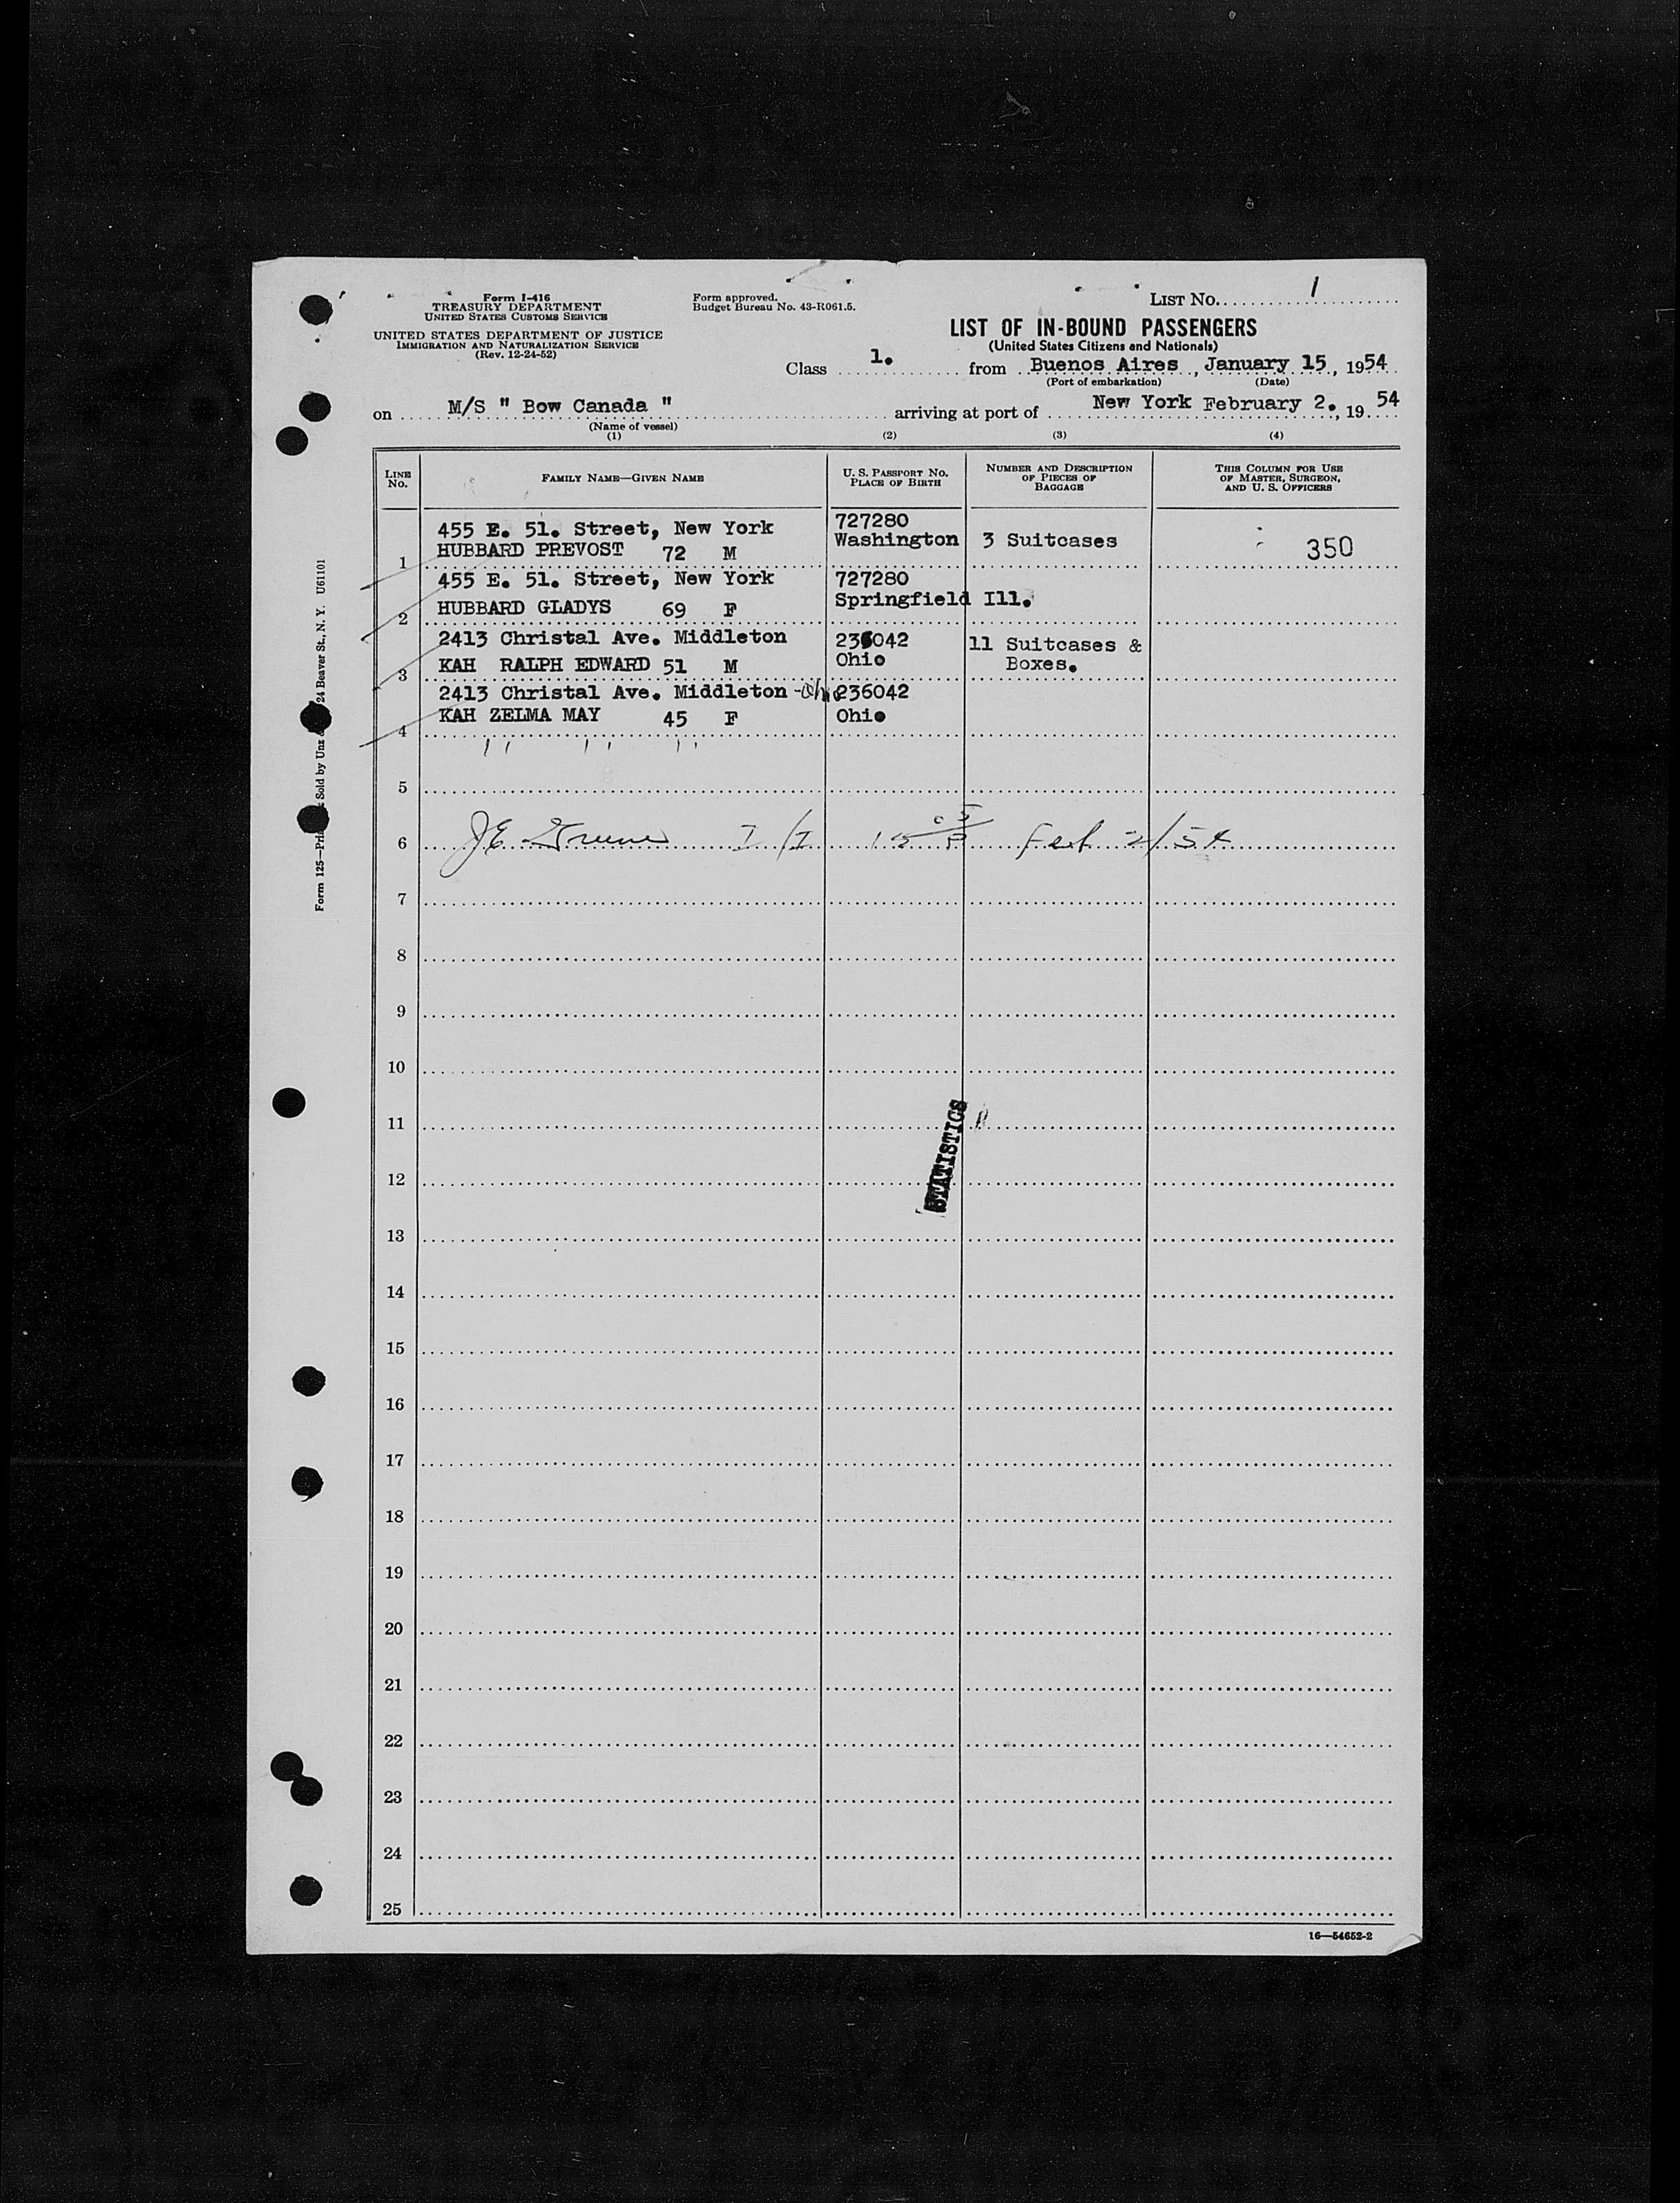 Form I-416
TREASURY DEPARTMENT
UNITED STATES CUSTOMS SERVICE
UNITED STATES DEPARTMENT OF JUSTICE
IMMIGRATION AND NATURALIZATION SERVICE
(Rev. 12-24-52)
Form approved.
Budget Bureau No. 43-R061.5.
LIST No. 1
LIST OF IN-BOUND PASSENGERS
(United States Citizens and Nationals)
Class 1. from Buenos Aires, January 15, 1954
(Port of embarkation) (Date)
on M/S " Bow Canada " arriving at port of New York February 2., 19 54
(Name of vessel)
(1) (2) (3) (4)
LINE No. FAMILY NAME—GIVEN NAME U. S. PASSPORT No. PLACE OF BIRTH NUMBER AND DESCRIPTION OF PIECES OF BAGGAGE THIS COLUMN FOR USE OF MASTER, SURGEON, AND U. S. OFFICERS
455 E. 51. Street, New York 727280
1 HUBBARD PREVOST 72 M Washington 3 Suitcases 350
455 E. 51. Street, New York 727280
2 HUBBARD GLADYS 69 F Springfield Ill.
2413 Christal Ave. Middleton 236042 11 Suitcases &
3 KAH RALPH EDWARD 51 M Ohio Boxes.
2413 Christal Ave. Middleton - Ohio 236042
4 KAH ZELMA MAY 45 F Ohio
" " "
5
6 JE Greene I/I Feb 2/54
7
8
9
10
11
STATISTICS
12
13
14
15
16
17
18
19
20
21
22
23
24
25
16—54652-2
Form 125—Sold by Unz 24 Beaver St., N. Y. U61101